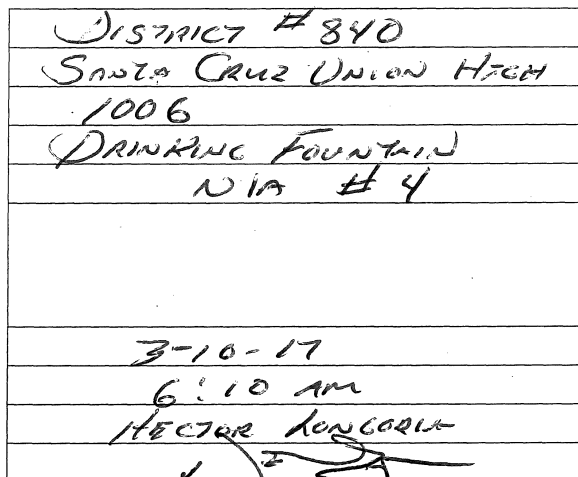 DISTRICT # 840
SANTA CRUZ UNION HIGH
1006
DRINKING FOUNTAIN
N/A # 4
3-10-17
6:10 AM
HECTOR LONGORIA